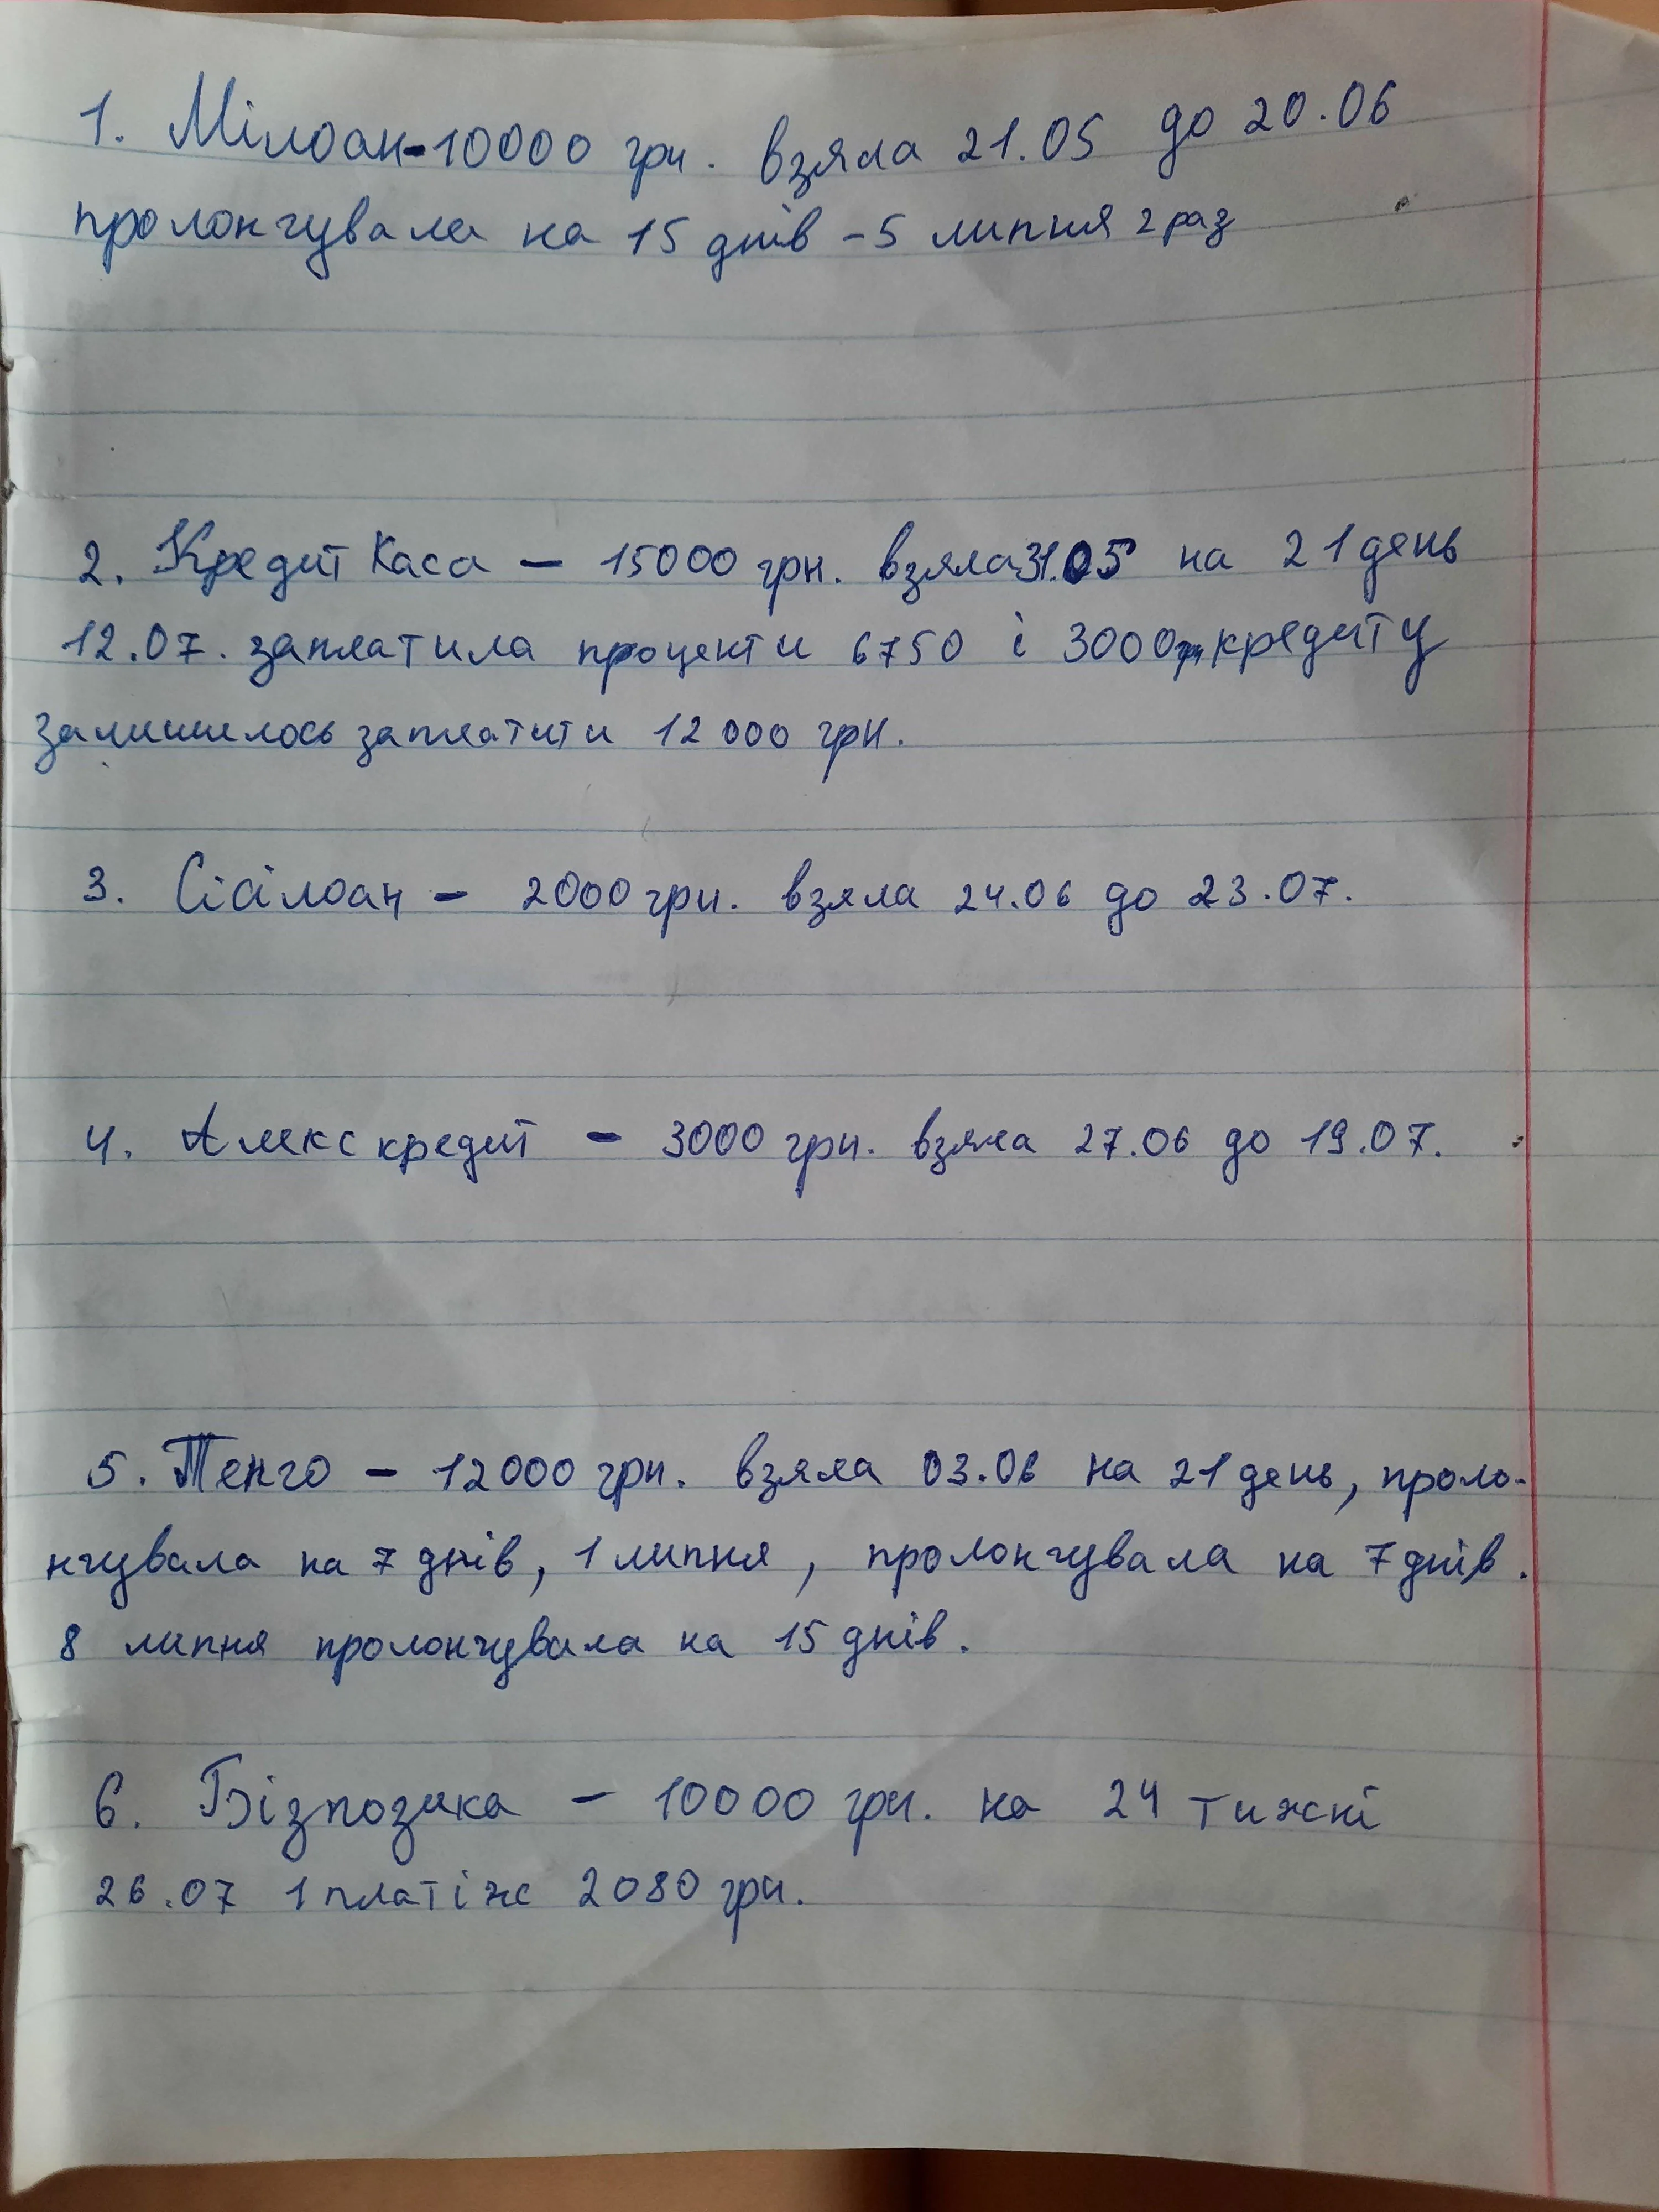 1. Мілоан-10000 грн. взяла 21.05 до 20.06
пролонгувала на 15 днів - 5 липня 2 раз
2. Кредит Каса - 15000 грн. взяла 31.05 на 21 день
12.07. заплатила проценти 6750 і 3000 грн кредиту
залишилось заплатити 12000 грн.
3. Сісілоан - 2000 грн. взяла 24.06 до 23.07.
4. Алекс кредит - 3000 грн. взяла 27.06 до 19.07.
5. Тенго - 12000 грн. взяла 03.06 на 21 день, проло-
нгувала на 7 днів, 1 липня, пролонгувала на 7 днів.
8 липня пролонгувала на 15 днів.
6. Бізпозика - 10000 грн. на 24 тижні
26.07 1 платіж 2080 грн.